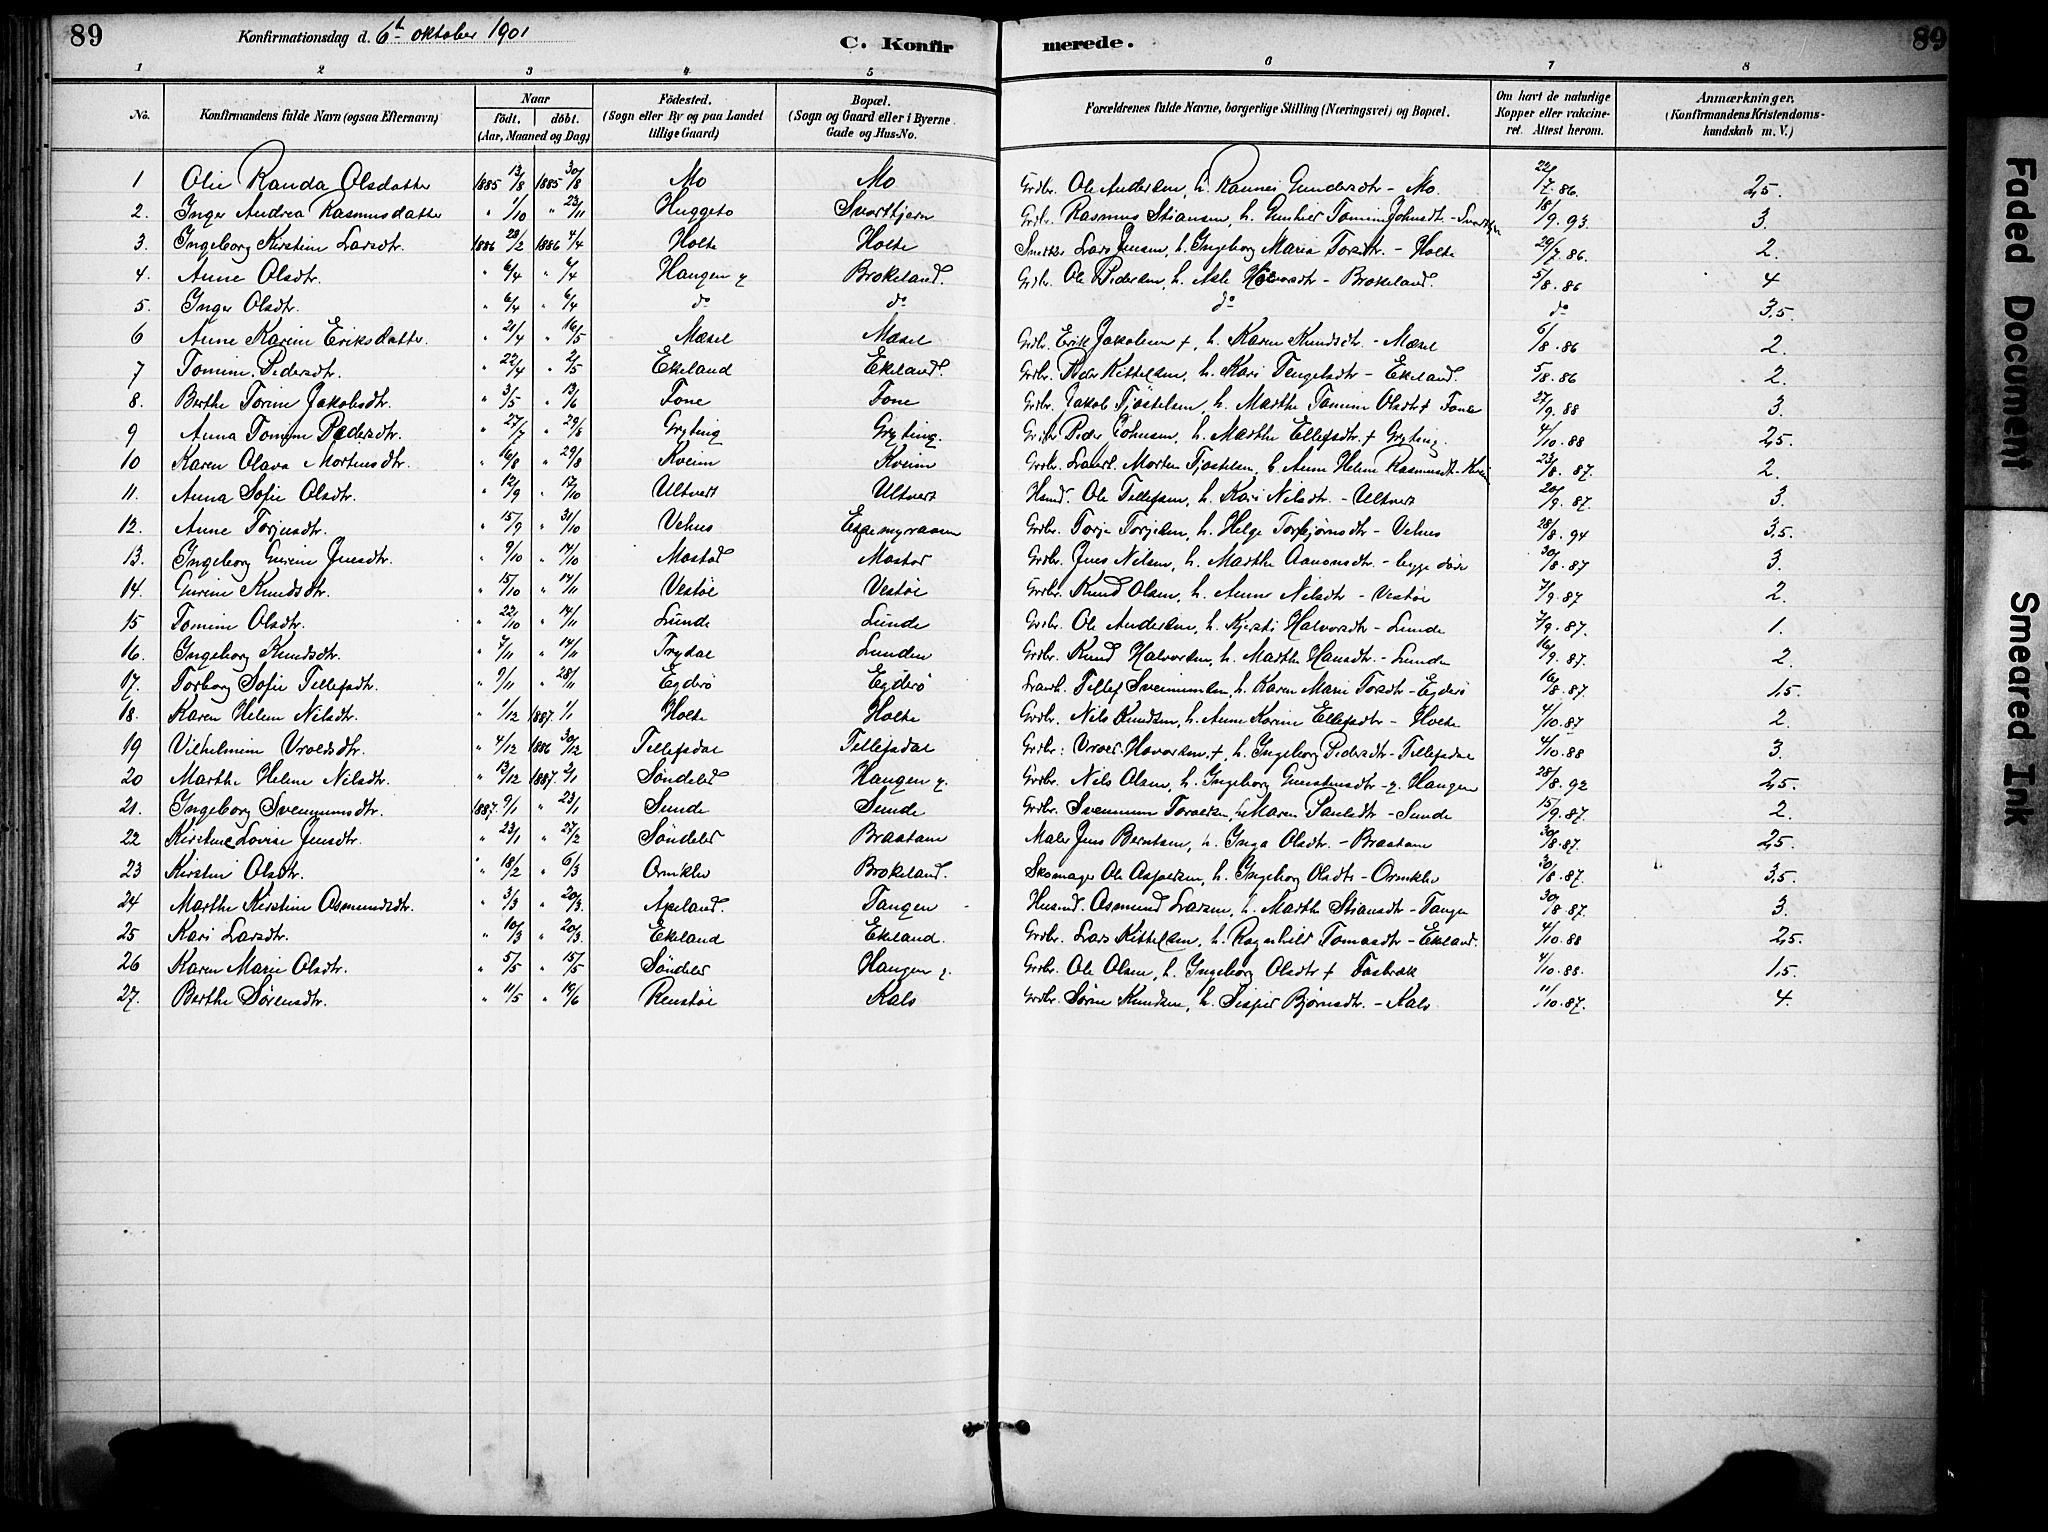 89 Konfirmationsdag d. 6te oktober 1901 C. Konfir merede. 89
1 2 3 4 5 6 7 8
No. Konfirmandens fulde Navn (ogsaa Efternavn) Naar födt. döbt. (Aar, Maaned og Dag) Födested. (Sogn eller By og paa Landet tillige Gaard) Bopæl. (Sogn og Gaard eller i Byerne Gade og Hus-No. Forældrenes fulde Navne, borgerlige Stilling (Næringsvei) og Bopæl. Om havt de naturlige Kopper eller vakcineret. Attest herom. Anmærkninger. (Konfirmandens Kristendomskundskab m. V.)
1 Olie Randa Olsdatter 1885 13/8 1885 30/8 Mo Mo Grdbr. Ole Andersen, h. Rannei Gundersdtr - Mo. 22/7.86. 2,5.
2. Inger Andrea Rasmusdatter " 1/10 " 23/11 Huggeto Svarttjern Grdbr. Rasmus Stiansen, h. Tomine Johnsdtr. 18/9.93. 3.
3. Ingeborg Kirstine Larsdtr. 1886 28/2 1886 4/4 Holte Holte Lars Jensen, h. Ingeborg Maria Torsdtr - Holte 29/7.86. 2.
4. Anne Olsdtr. " 6/4 " 6/4 Haugen y Brokeland. Grdbr. Ole Pedersen, h. Asle Halvorsdtr - Brokeland. 5/8.86 4
5. Inger Olsdtr. " 6/4 " 6/4 do do do do 3,5.
6 Anne Karine Eriksdatter " 21/4 " 16/5 Mæsel Mæsel Grdbr. Erik Jakobsen +, h. Karen Knudsdtr. - Mæsel 6/8.86 2.
7 Tomine Pedersdtr. " 22/4 " 2/5 Ekeland Ekeland. Grdbr. Peder Kittelsen, h. Kari Tengelsdtr - Ekeland. 5/8.86 2.
8. Berthe Torine Jakobsdtr. " 3/5 " 13/6 Fone Fone Grdbr. Jakob Tjøstelsen, h. Marthe Tomine Olsdtr + Fone 27/9.88 3.
9 Anna Tomine Pedersdtr. " 27/7 " 29/8 Gryting Gryting. Grdbr Peder Johnsen, h. Marthe Ellefsdtr. + Gryting. 4/10.88 2,5.
10 Karen Olava Mortensdtr. " 16/8 " 29/8 Kveim Kveim Grdbr. Morten Tjøstelsen, h. Anne Helene Rasmusdtr - Kveim 23/8.87. 2.
11. Anna Sofie Olsdtr. " 12/9 " 17/10 Ultveit Ultveit Husmd. Ole Tellefsen, h. Kari Nilsdtr. - Ultveit 20/9.87. 3.
12. Anne Torjusdtr. " 15/9 " 31/10 Vehus Espemyraasen Grdbr. Torje Torjesen, h. Helge Torbjørnsdtr - Vehus 28/8.94 3,5.
13. Ingeborg Gurine Jensdtr. " 9/10 " 14/10 Mostad Mostad Grdbr. Jens Nilsen, h. Marthe Aanonsdtr. - begge døde 30/8.87 3.
14. Gurine Knudsdtr. " 15/10 " 14/11 Vestøl Vestøl Grdbr. Knud Olsen, h. Anne Nilsdtr - Vestøl 7/9.87 2.
15 Tomine Olsdtr. " 22/10 " 14/11 Lunde Lunde Grdbr. Ole Andersen, h. Kjersti Halvorsdtr - Lunde 7/9.87. 1.
16. Ingeborg Knudsdtr. " 7/11 " 14/11 Trydal Lunden Grdbr. Knud Halvorsen, h. Marthe Hansdtr. - Lunden 16/9.87. 2.
17. Torborg Sofie Tellefsdtr. " 9/11 " 28/11 Egderø Egderø Tellef Sveinunsen, h. Karen Marie Torsdtr - Egderø 16/8.87. 1,5.
18. Karen Helene Nilsdtr. " 1/12 1887. 1/1 Holte Holte Grdbr. Nils Knudsen, h. Anne Karine Ellefsdtr - Holte 4/10.87 2.
19 Vilhelmine Vroldsdtr. " 4/12 1886 30/12 Tellefsdal Tellefsdal Grdbr: Vrold Havorsen, +, h. Ingeborg Pedersdtr - Tellefsdal 4/10.88 3.
20 Marthe Helene Nilsdtr. " 13/12 1887. 2/1 Søndeled Haugen y. Grdbr. Nils Olsen, h. Ingeborg - y. Haugen 28/8.92 2,5.
21. Ingeborg Svenumsdtr. 1887. 9/1 " 23/1 Sunde Sunde Grdbr. Svenum Toraldsen, h. Maren - Sunde 15/9.87. 2.
22 Kirstine Lovise Jensdtr. " 23/1 " 27/2 Søndeled Braatane Maler Jens Berntsen, h. Inga Olsdtr. - Braatane 30/8.87. 2,5.
23 Kirstine Olsdtr. " 18/2 " 6/3 Ormkleiv Brokeland. Skomager Ole h. Ingeborg Olsdtr - Ormkleiv 30/8.87. 3,5.
24 Marthe Kirstine Osmundsdtr. " 3/3 " 20/3. Apeland. Tangen Husmd. Osmund Larsen, h. Marthe Stiansdtr - Tangen 30/8.87. 3.
25 Kari Larsdtr. " 10/3 " 20/3. Ekeland Ekeland. Grdbr. Lars Kittelsen, h. Ragnhild Tomasdtr - Ekeland. 4/10.88 2,5.
26 Karen Marie Olsdtr. " 5/5 " 15/5 Søndeled Haugen y. Grdbr. Ole Olsen, h. Ingeborg Olsdtr + Fosbræk 4/10.88. 1,5.
27. Berthe Sørensdtr. " 11/5 " 19/6 Renstøl Kals Grdbr. Søren Knudsen, h. Bjørnsdtr. - Kals 11/10.87. 4.
Faded Document
Smeared Ink